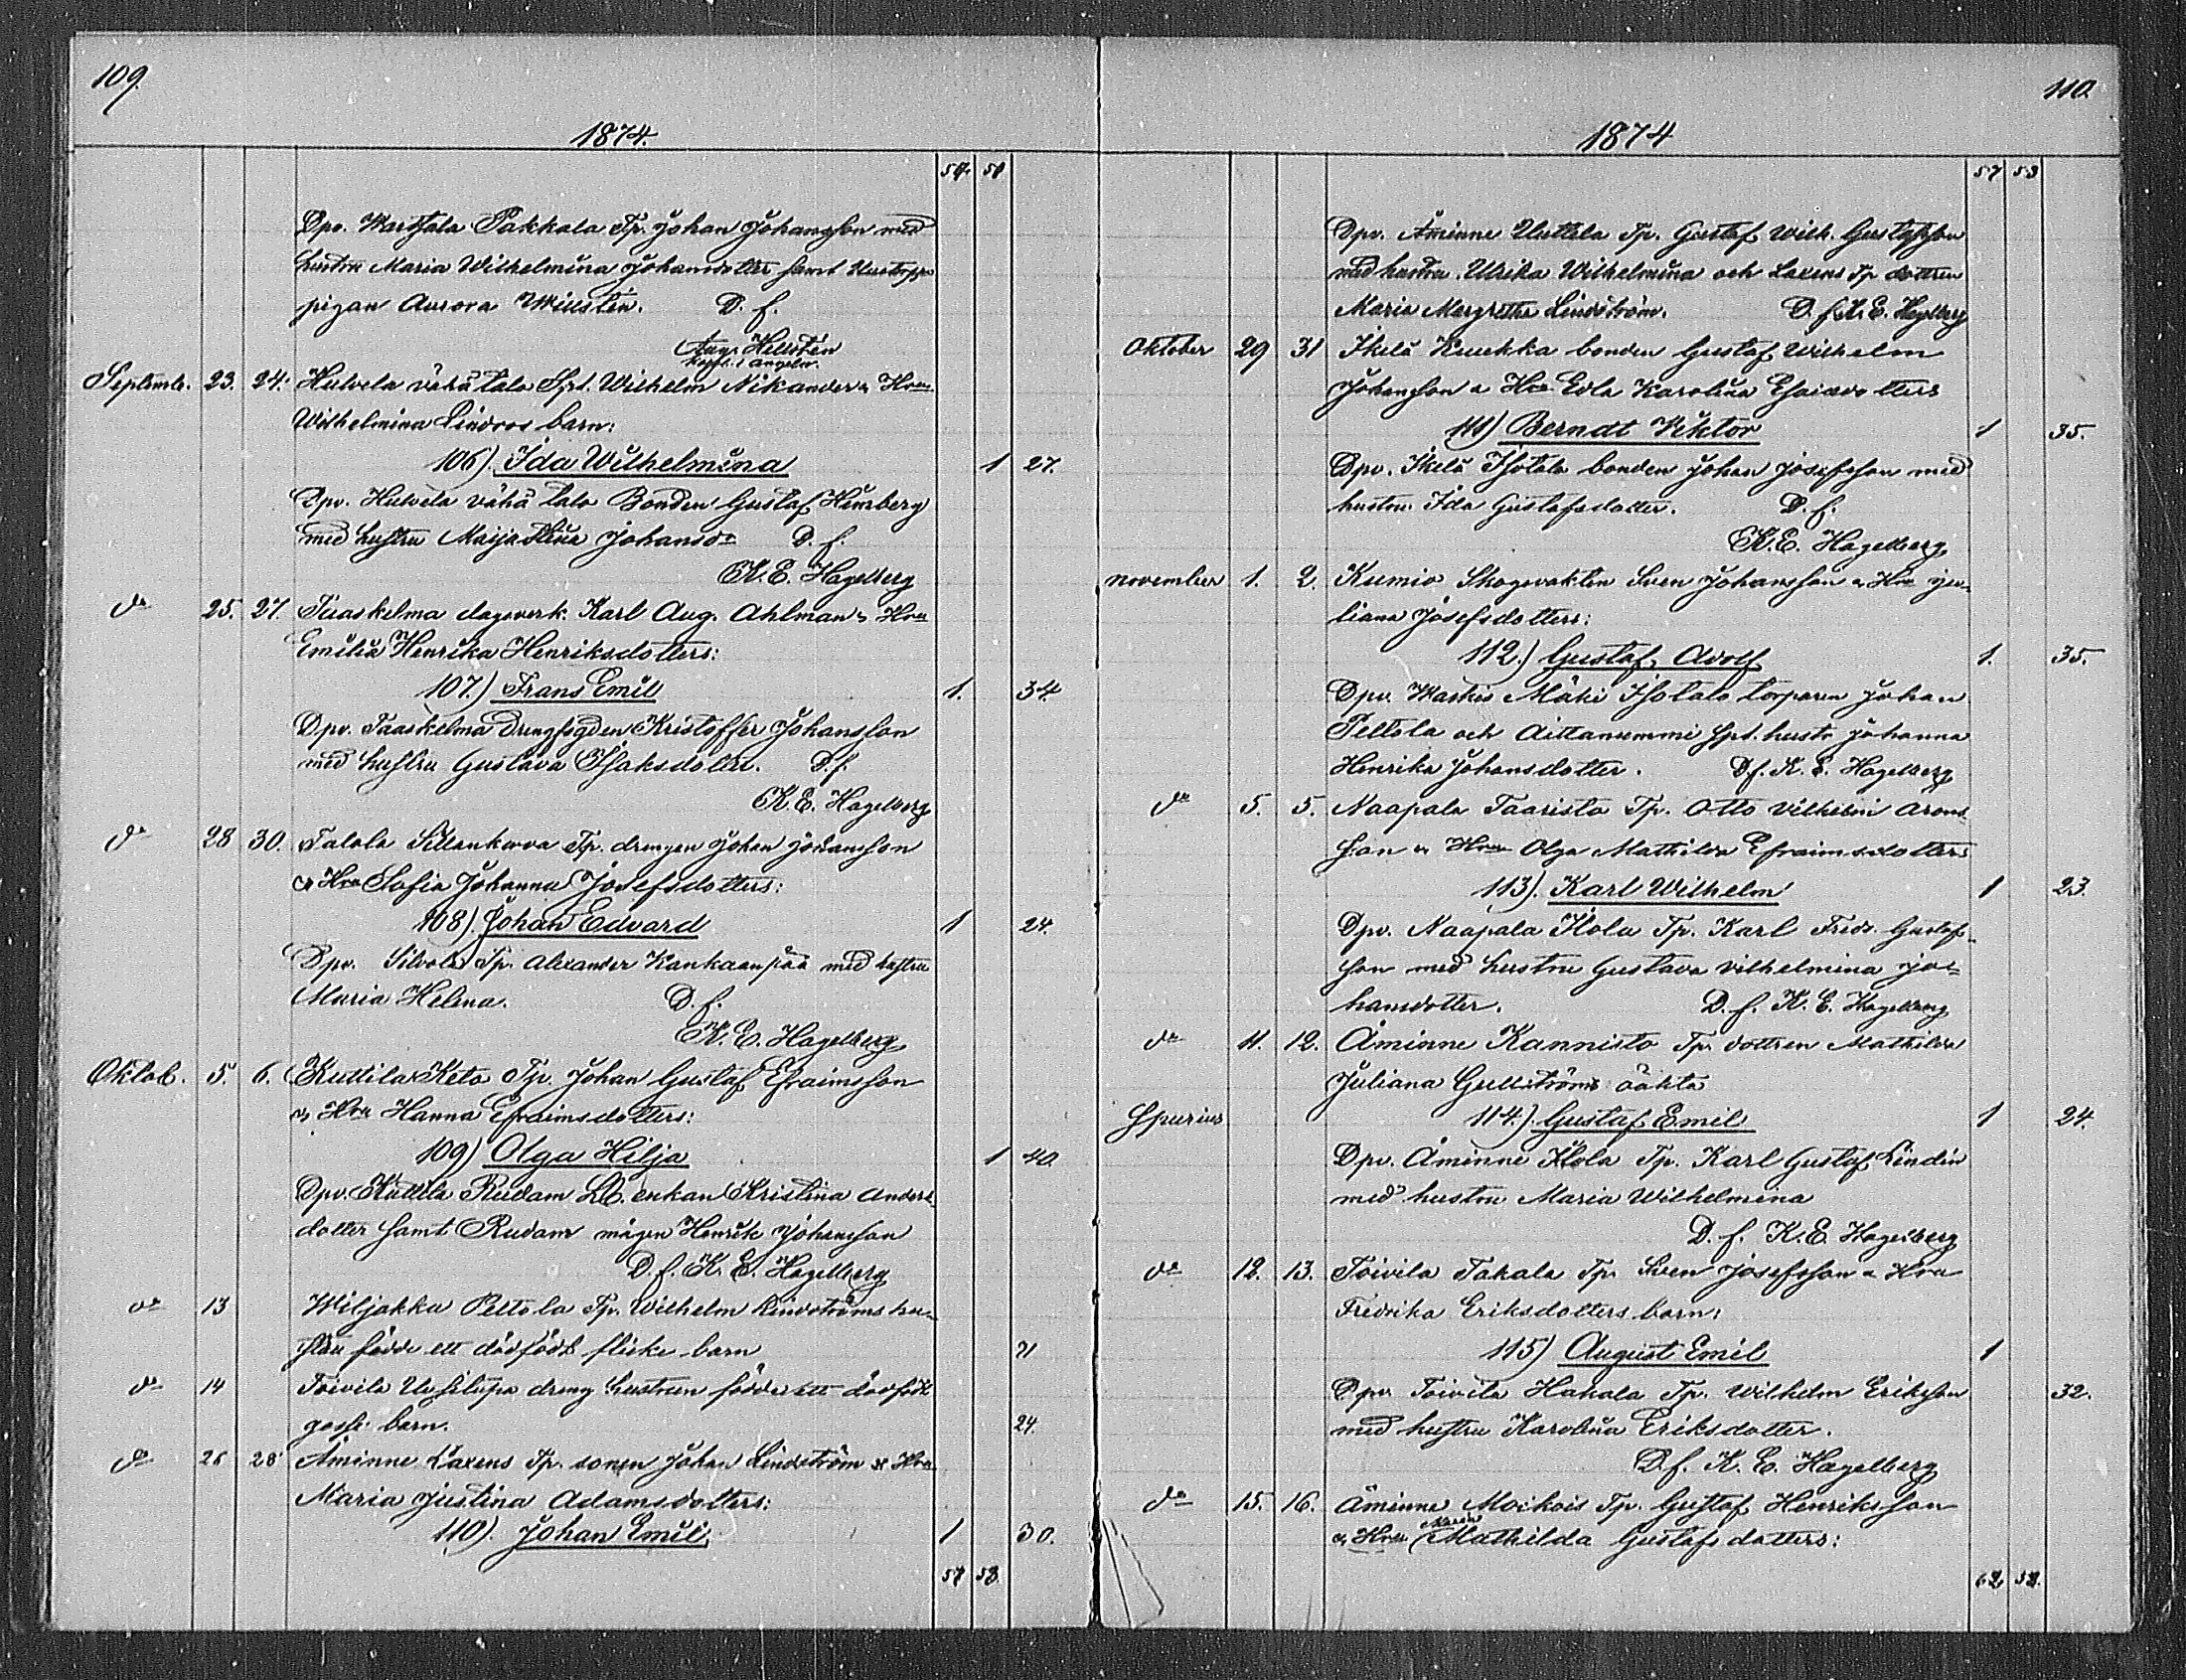 109.
1874.
54. 51
Dpv. Warttala Pakkala Tp. Johan Johansson med
hustru Maria Wilhelmina Johansdotter samt
pigan Aurora Willstén. D. f.
Aug. Hellstén
Kapl. i Angeln.
Septemb. 23. 24. Hulvela vähä talo Spt. Wilhelm Nikander o Hru
Wilhelmina Lindroos barn:
106). Ida Wilhelmina 1 27.
Dpv. Hulvela vähä talo Bonden Gustaf Heurberg
med hustru Maija Stina Johansdr D. f.
K. E. Hagelberg
do 25. 27. Taaskelma dagsverk. Karl Aug. Ahlman o Hru
Emilia Henrika Henriksdotters:
107.) Frans Emil 1. 34.
Dpv. Taaskelma Drengfogden Kristoffer Johansson
med hustru Gustava Isaksdotter. D. f.
K. E. Hagelberg
do 28 30. Talola Sillankorva Tp. drengen Johan Johansson
o Hru Sofia Johanna Josefsdotters:
108). Johan Edvard 1 24.
Dpv. Silvola Tp. Alexander Kankaanpää med hustru
Maria Helena. D. f.
K. E. Hagelberg
Oktob. 5. 6. Kuttila Keto Tp. Johan Gustaf Efraimsson
o Hru Hanna Efraimsdotters:
109) Olga Hilja 1 40.
Dpv. Kuttila Rudam enkan Kristina Anders
dotter samt Rudam mågen Henrik Johansson
D. f. K. E. Hagelberg
do 13 Wiljakka Peltola Tp. Wilhelm Lindströms hu-
stru födde ett dödfödt flicke barn 21
do 14 Toivila Uusilupa dreng hustrun födde ett dödfödt
gosse barn. 24.
do 26 28 Åminne Laxens Tp. sonen Johan Lindström o Hru
Maria Justina Adamsdotters:
110). Johan Emil 1 30.
57 53.
110.
1874
57 53
Dpv. Åminne Uuttela Tp. Gustaf Wilh. Gustafsson
med hustru Ulrika Wilhelmina och Laxens Tp dottren
Maria Margretha Lindström. D. f. K. E. Hagelberg
Oktober 29 31 Ikelä Keuekka bonden Gustaf Wilhelm
Johansson o Hru Edla Karolina Esaiædotters
111) Berndt Viktor 1 35.
Dpv. Ikelä Isotalo bonden Johan Josefsson med
hustru Ida Gustafsdotter. D. f.
K. E. Hagelberg
November 1. 2. Kumio Skogsvakten Sven Johansson o Hru Ju-
liana Josefsdotters:
112.) Gustaf Adolf 1. 35.
Dpv. Waskio Mäki Isotalo torparen Johan
Peltola och Aittanummi Spt. hustr Johanna
Henrika Johansdotter. D. f. K. E. Hagelberg
do 5. 5. Naapala Taaristo Tp. Otto Vilhelm Arons
son o Hru Olga Mathilda Efraimsdotters
113). Karl Wilhelm 1 23.
Dpv. Naapala Kola Tp. Karl Fredr. Gustaf-
son med hustru Gustava Vilhelmina Jo-
hansdotter. D. f. K. E. Hagelberg
do 11. 12. Åminne Kannisto Tp. dottren Mathilda
Juliana Gullströms oäkta
Spurius 114.) Gustaf Emil 1 24.
Dpv. Åminne Kola Tp. Karl Gustaf Lindin
med hustru Maria Wilhelmina
D. f. K. E. Hagelberg
do 12. 13. Toivila Takala Tp. Sven Josefsson o Hru
Fredrika Eriksdotters barn:
115) August Emil 1
Dpv. Toivila Hakala Tp. Wilhelm Eriksson 32.
med hustru Karolina Eriksdotter.
D. f. K. E. Hagelberg
do 15. 16. Åminne Moikois Tp. Gustaf Henriksson
o Hru Maria Mathilda Gustafsdotters:
62 53.